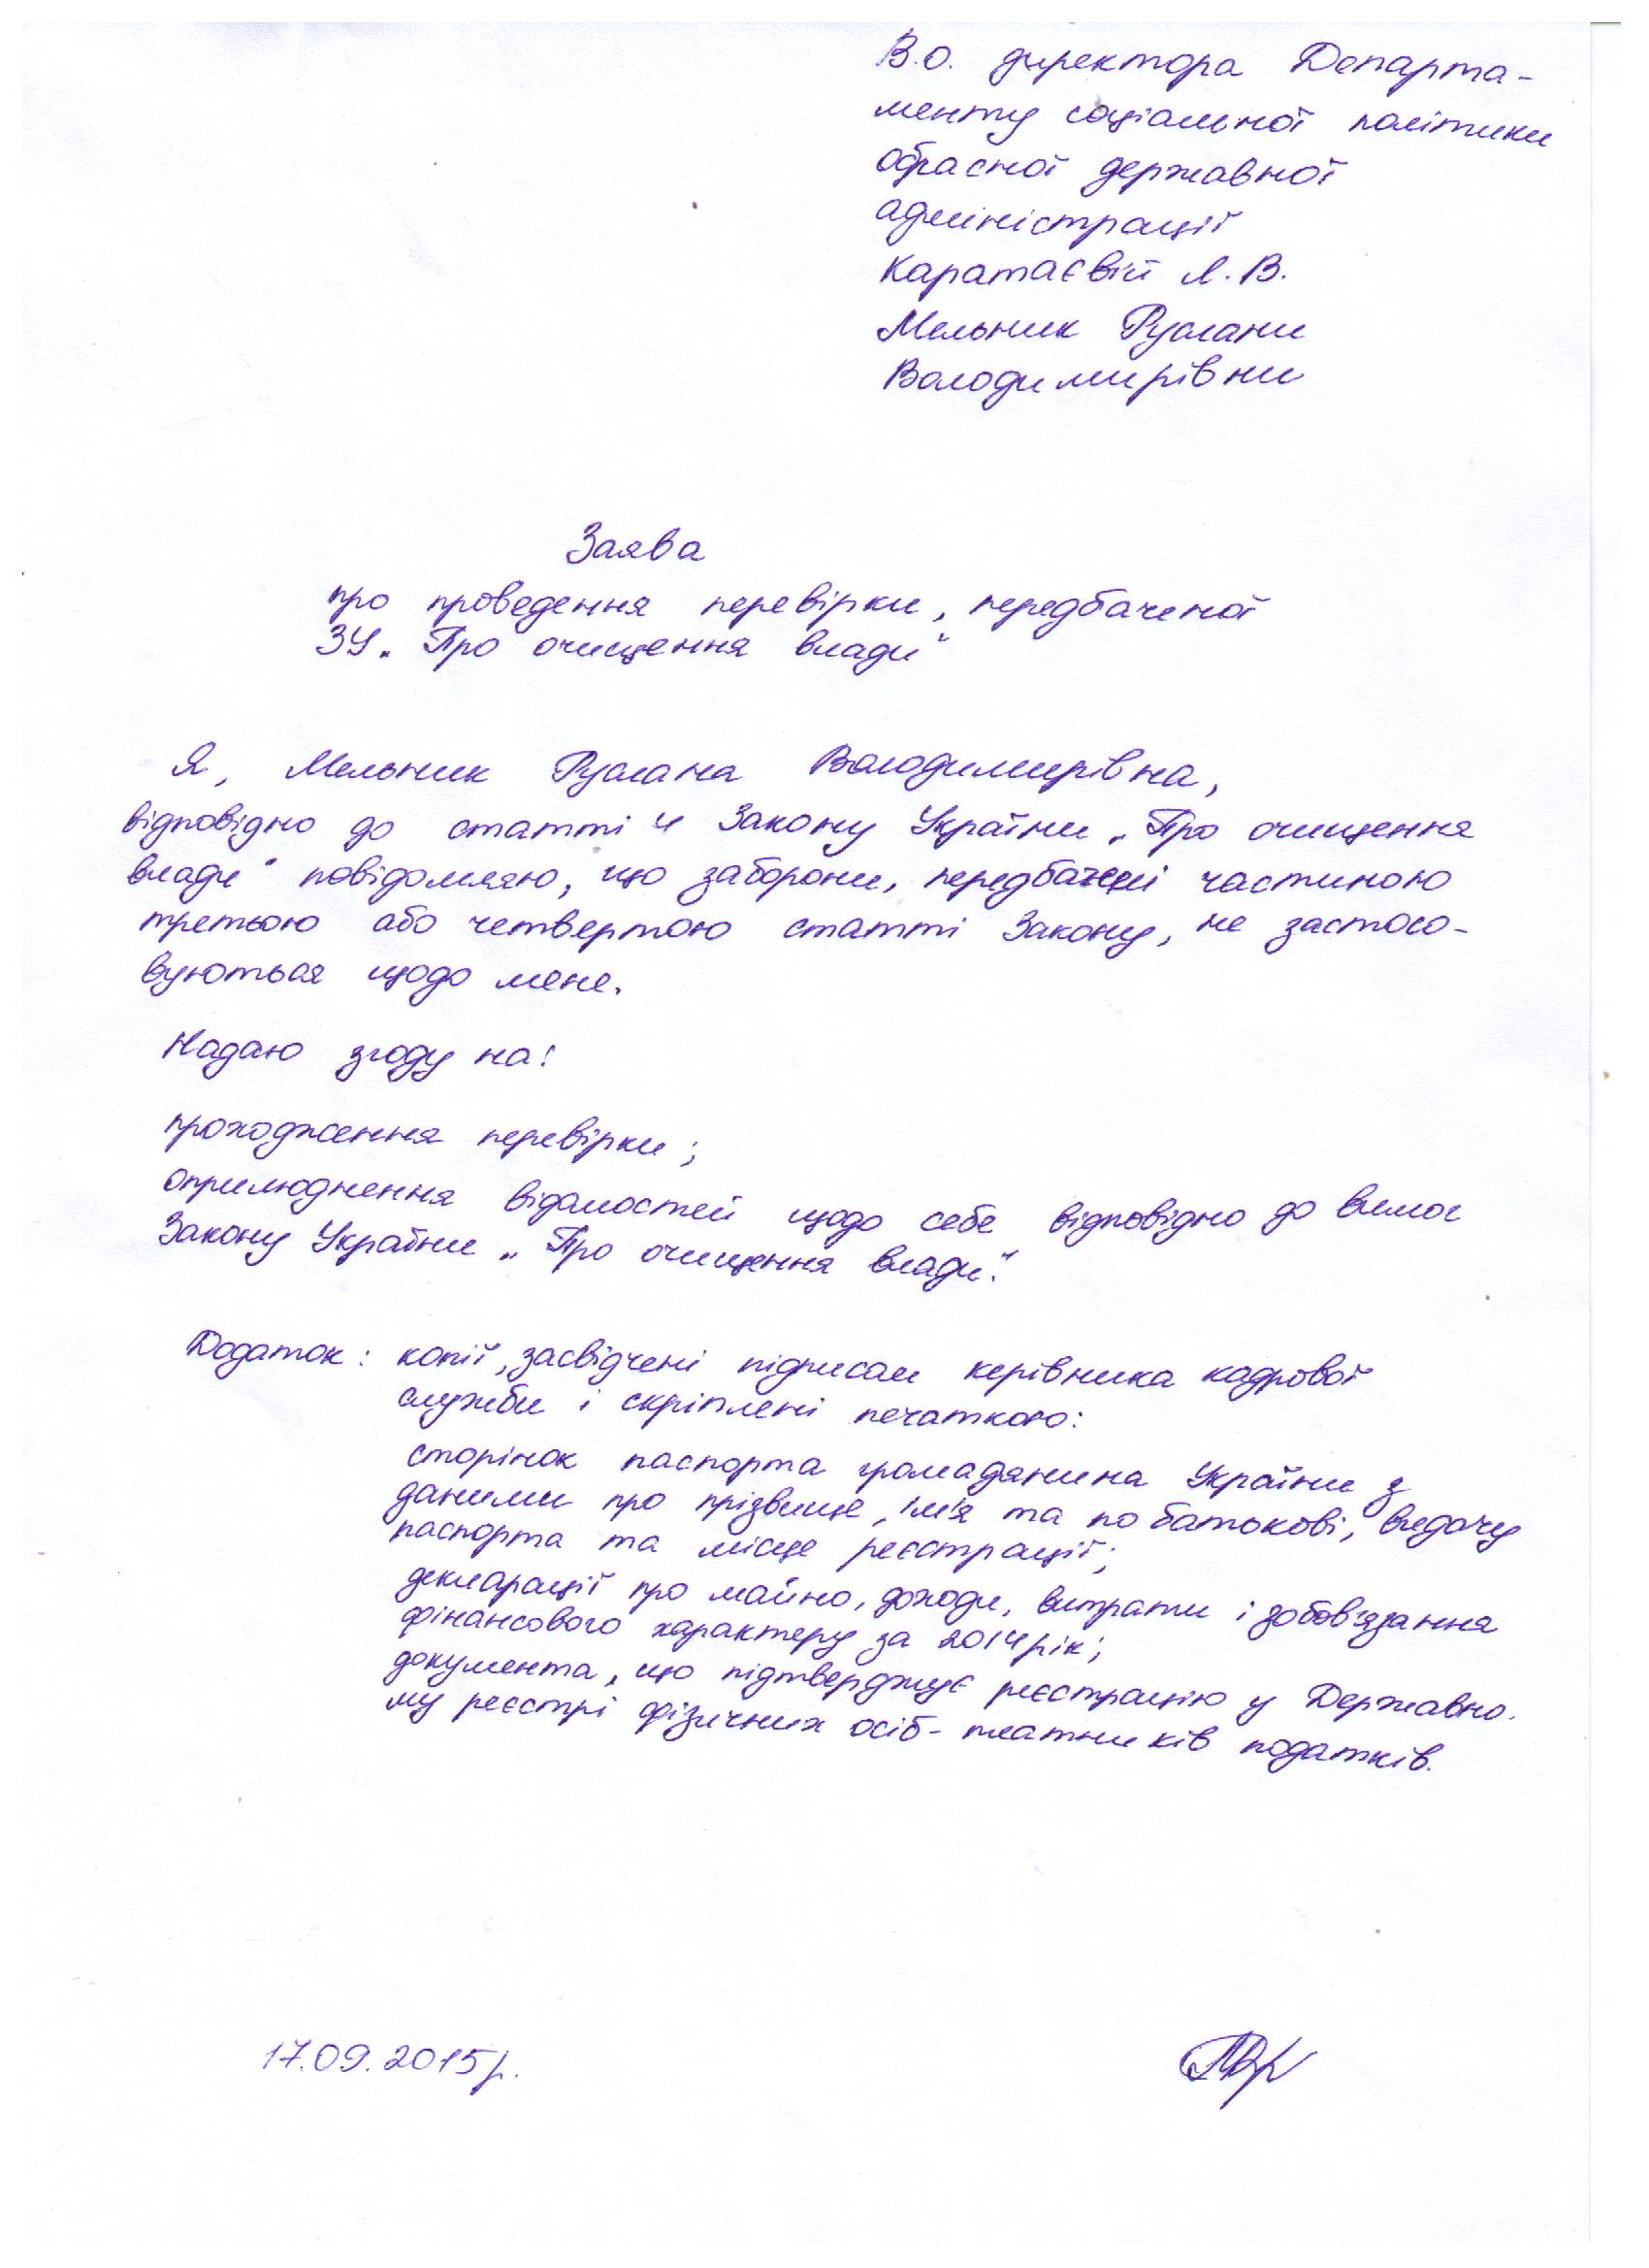 В.о. директора Департа-
менту соціальної політики
обласної державної
адміністрації
Каратаєвій Л.В.
Мельник Руслани
Володимирівни
Заява
про проведення перевірки, передбаченої
ЗУ „Про очищення влади“
Я, Мельник Руслана Володимирівна,
відповідно до статті 4 Закону України „Про очищення
влади“ повідомляю, що заборони, передбачені частиною
третьою або четвертою статті Закону, не застосо-
вуються щодо мене.
Надаю згоду на:
проходження перевірки;
оприлюднення відомостей щодо себе відповідно до вимог
Закону України „Про очищення влади“.
Додаток: копії, засвідчені підписом керівника кадрової
служби і скріплені печаткою:
сторінок паспорта громадянина України з
даними про прізвище, ім'я та по батькові, видачу
паспорта та місце реєстрації;
декларації про майно, доходи, витрати і зобов'язання
фінансового характеру за 2014 рік;
документа, що підтверджує реєстрацію у Державно-
му реєстрі фізичних осіб-платників податків.
17.09.2015р.